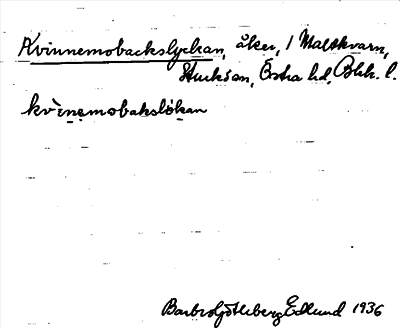 Kvinnemobackslyckan, åker, 1 Maltkvarn,
Sturkö sn, Östra hd, Blek. l.
kvinemobakslökan
Barbro Götleberg Edlund 1936